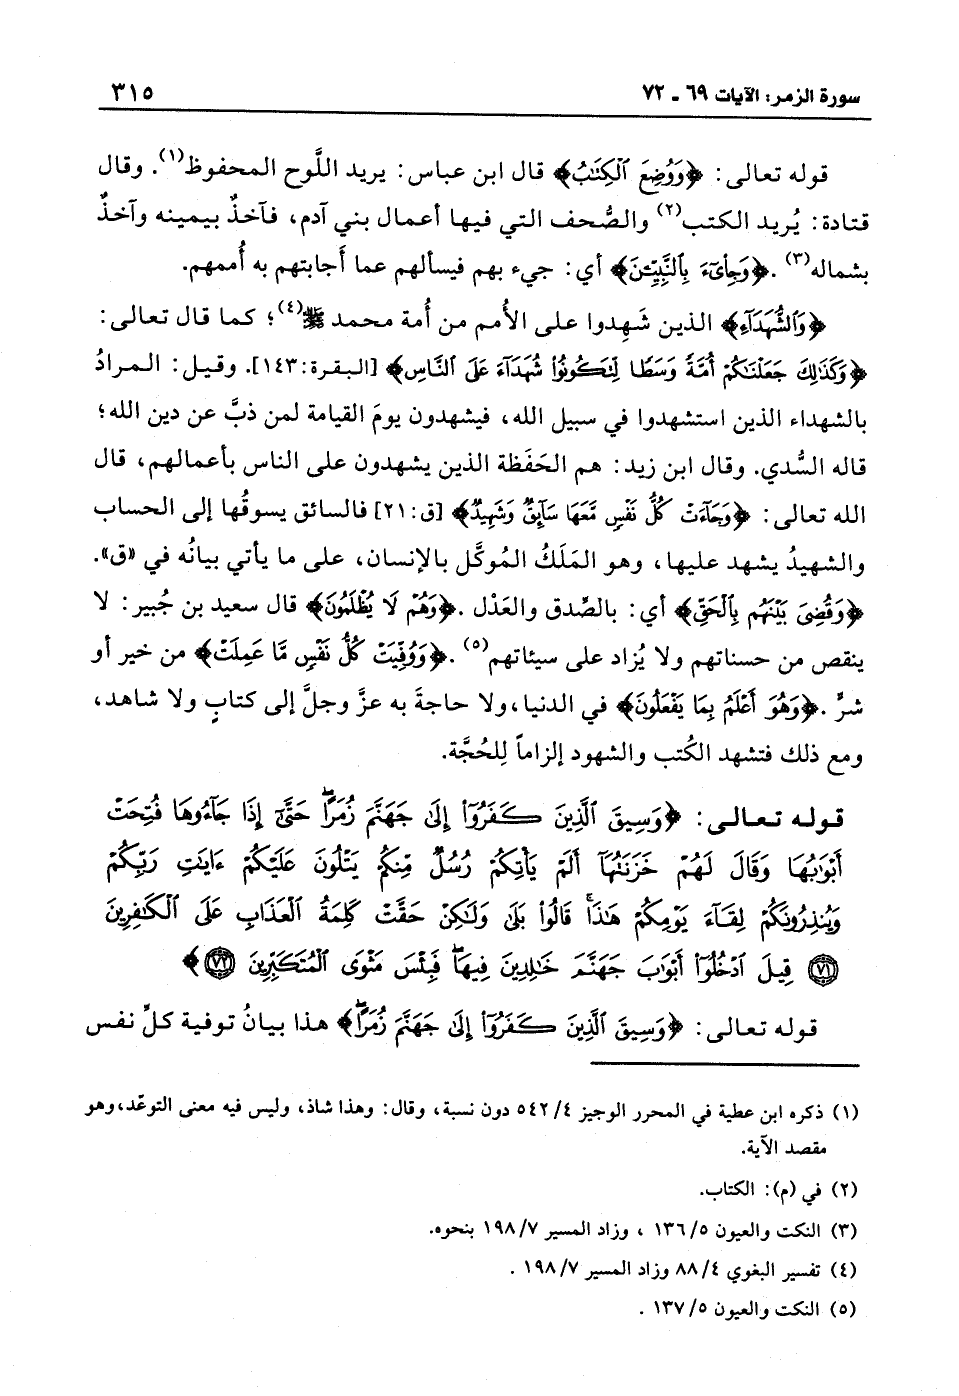 سورة الزمر: الآيات ٦٩ ـ ٧٢
٣١٥
قوله تعالى: ﴿وَوُضِعَ ٱلْكِتَٰبُ﴾ قال ابن عباس: يريد اللَّوح المحفوظ(١). وقال
قتادة: يُريد الكتب(٢) والصُّحف التي فيها أعمال بني آدم، فآخذٌ بيمينه وآخذٌ
بشماله(٣). ﴿وَجِا۟ىٓءَ بِٱلنَّبِيِّـۧنَ﴾ أي: جيء بهم فيسألهم عما أجابتهم به أُممهم.
﴿وَٱلشُّهَدَآءِ﴾ الذين شَهِدوا على الأُمم من أُمة محمد ﷺ(٤)؛ كما قال تعالى:
﴿وَكَذَٰلِكَ جَعَلْنَٰكُمْ أُمَّةً وَسَطًا لِّتَكُونُوا۟ شُهَدَآءَ عَلَى ٱلنَّاسِ﴾ [البقرة:١٤٣]. وقيل: المرادُ
بالشهداء الذين استشهدوا في سبيل الله، فيشهدون يومَ القيامة لمن ذبَّ عن دين الله؛
قاله السُّدي. وقال ابن زيد: هم الحَفَظة الذين يشهدون على الناس بأعمالهم، قال
الله تعالى: ﴿وَجَآءَتْ كُلُّ نَفْسٍ مَّعَهَا سَآئِقٌ وَشَهِيدٌ﴾ [ق:٢١] فالسائق يسوقُها إلى الحساب
والشهيدُ يشهد عليها، وهو المَلَكُ المُوكَّل بالإنسان، على ما يأتي بيانُه في «ق».
﴿وَقُضِىَ بَيْنَهُم بِٱلْحَقِّ﴾ أي: بالصِّدق والعَدْل. ﴿وَهُمْ لَا يُظْلَمُونَ﴾ قال سعيد بن جُبير: لا
ينقص من حسناتهم ولا يُزاد على سيئاتهم(٥). ﴿وَوُفِّيَتْ كُلُّ نَفْسٍ مَّا عَمِلَتْ﴾ من خير أو
شرٍّ. ﴿وَهُوَ أَعْلَمُ بِمَا يَفْعَلُونَ﴾ في الدنيا،ولا حاجةَ به عزَّ وجلَّ إلى كتابٍ ولا شاهد،
ومع ذلك فتشهد الكُتب والشهود إلزاماً لِلحُجَّة.
قوله تعالى: ﴿وَسِيقَ ٱلَّذِينَ كَفَرُوٓا۟ إِلَىٰ جَهَنَّمَ زُمَرًا ۖ حَتَّىٰٓ إِذَا جَآءُوهَا فُتِحَتْ
أَبْوَٰبُهَا وَقَالَ لَهُمْ خَزَنَتُهَآ أَلَمْ يَأْتِكُمْ رُسُلٌ مِّنكُمْ يَتْلُونَ عَلَيْكُمْ ءَايَٰتِ رَبِّكُمْ
وَيُنذِرُونَكُمْ لِقَآءَ يَوْمِكُمْ هَٰذَا ۚ قَالُوا۟ بَلَىٰ وَلَٰكِنْ حَقَّتْ كَلِمَةُ ٱلْعَذَابِ عَلَى ٱلْكَٰفِرِينَ
(٧١) قِيلَ ٱدْخُلُوٓا۟ أَبْوَٰبَ جَهَنَّمَ خَٰلِدِينَ فِيهَا ۖ فَبِئْسَ مَثْوَى ٱلْمُتَكَبِّرِينَ (٧٢)﴾
قوله تعالى: ﴿وَسِيقَ ٱلَّذِينَ كَفَرُوٓا۟ إِلَىٰ جَهَنَّمَ زُمَرًا ۖ﴾ هذا بيانُ توفية كلِّ نفس
(١) ذكره ابن عطية في المحرر الوجيز ٥٤٢/٤ دون نسبة، وقال: وهذا شاذ، وليس فيه معنى التوعّد،وهو
مقصد الآية.
(٢) في (م): الكتاب.
(٣) النكت والعيون ١٣٦/٥ ، وزاد المسير ١٩٨/٧ بنحوه.
(٤) تفسير البغوي ٨٨/٤ وزاد المسير ١٩٨/٧ .
(٥) النكت والعيون ١٣٧/٥ .